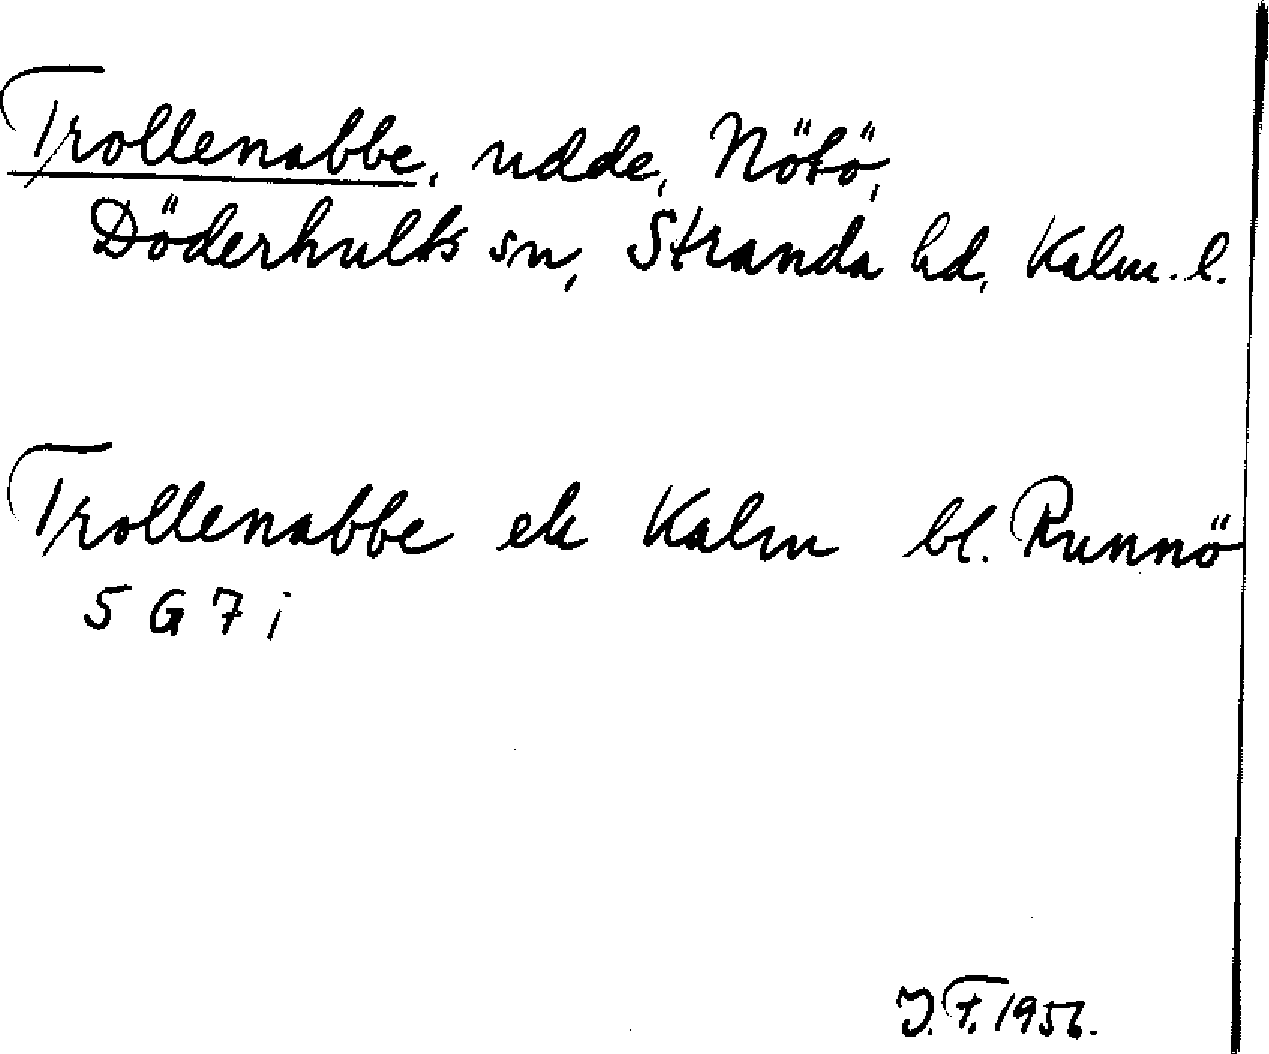 Trollenabbe, udde, Nötö,
Döderhults sn, Stranda hd, Kalm. l.
Trollenabbe ek Kalm bl. Runnö
5 G 7 i
J. F. 1956.